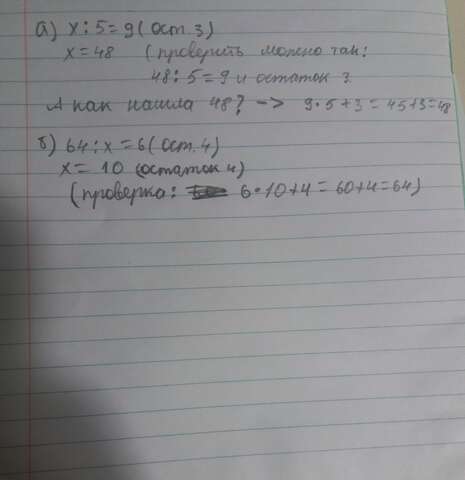 а) x : 5 = 9 (ост. 3)
x = 48 (проверить можно так:
48 : 5 = 9 и остаток 3
А как нашла 48? –> 9 · 5 + 3 = 45 + 3 = 48
б) 64 : x = 6 (ост. 4)
x = 10 (остаток 4)
(проверка: 6 · 10 + 4 = 60 + 4 = 64)